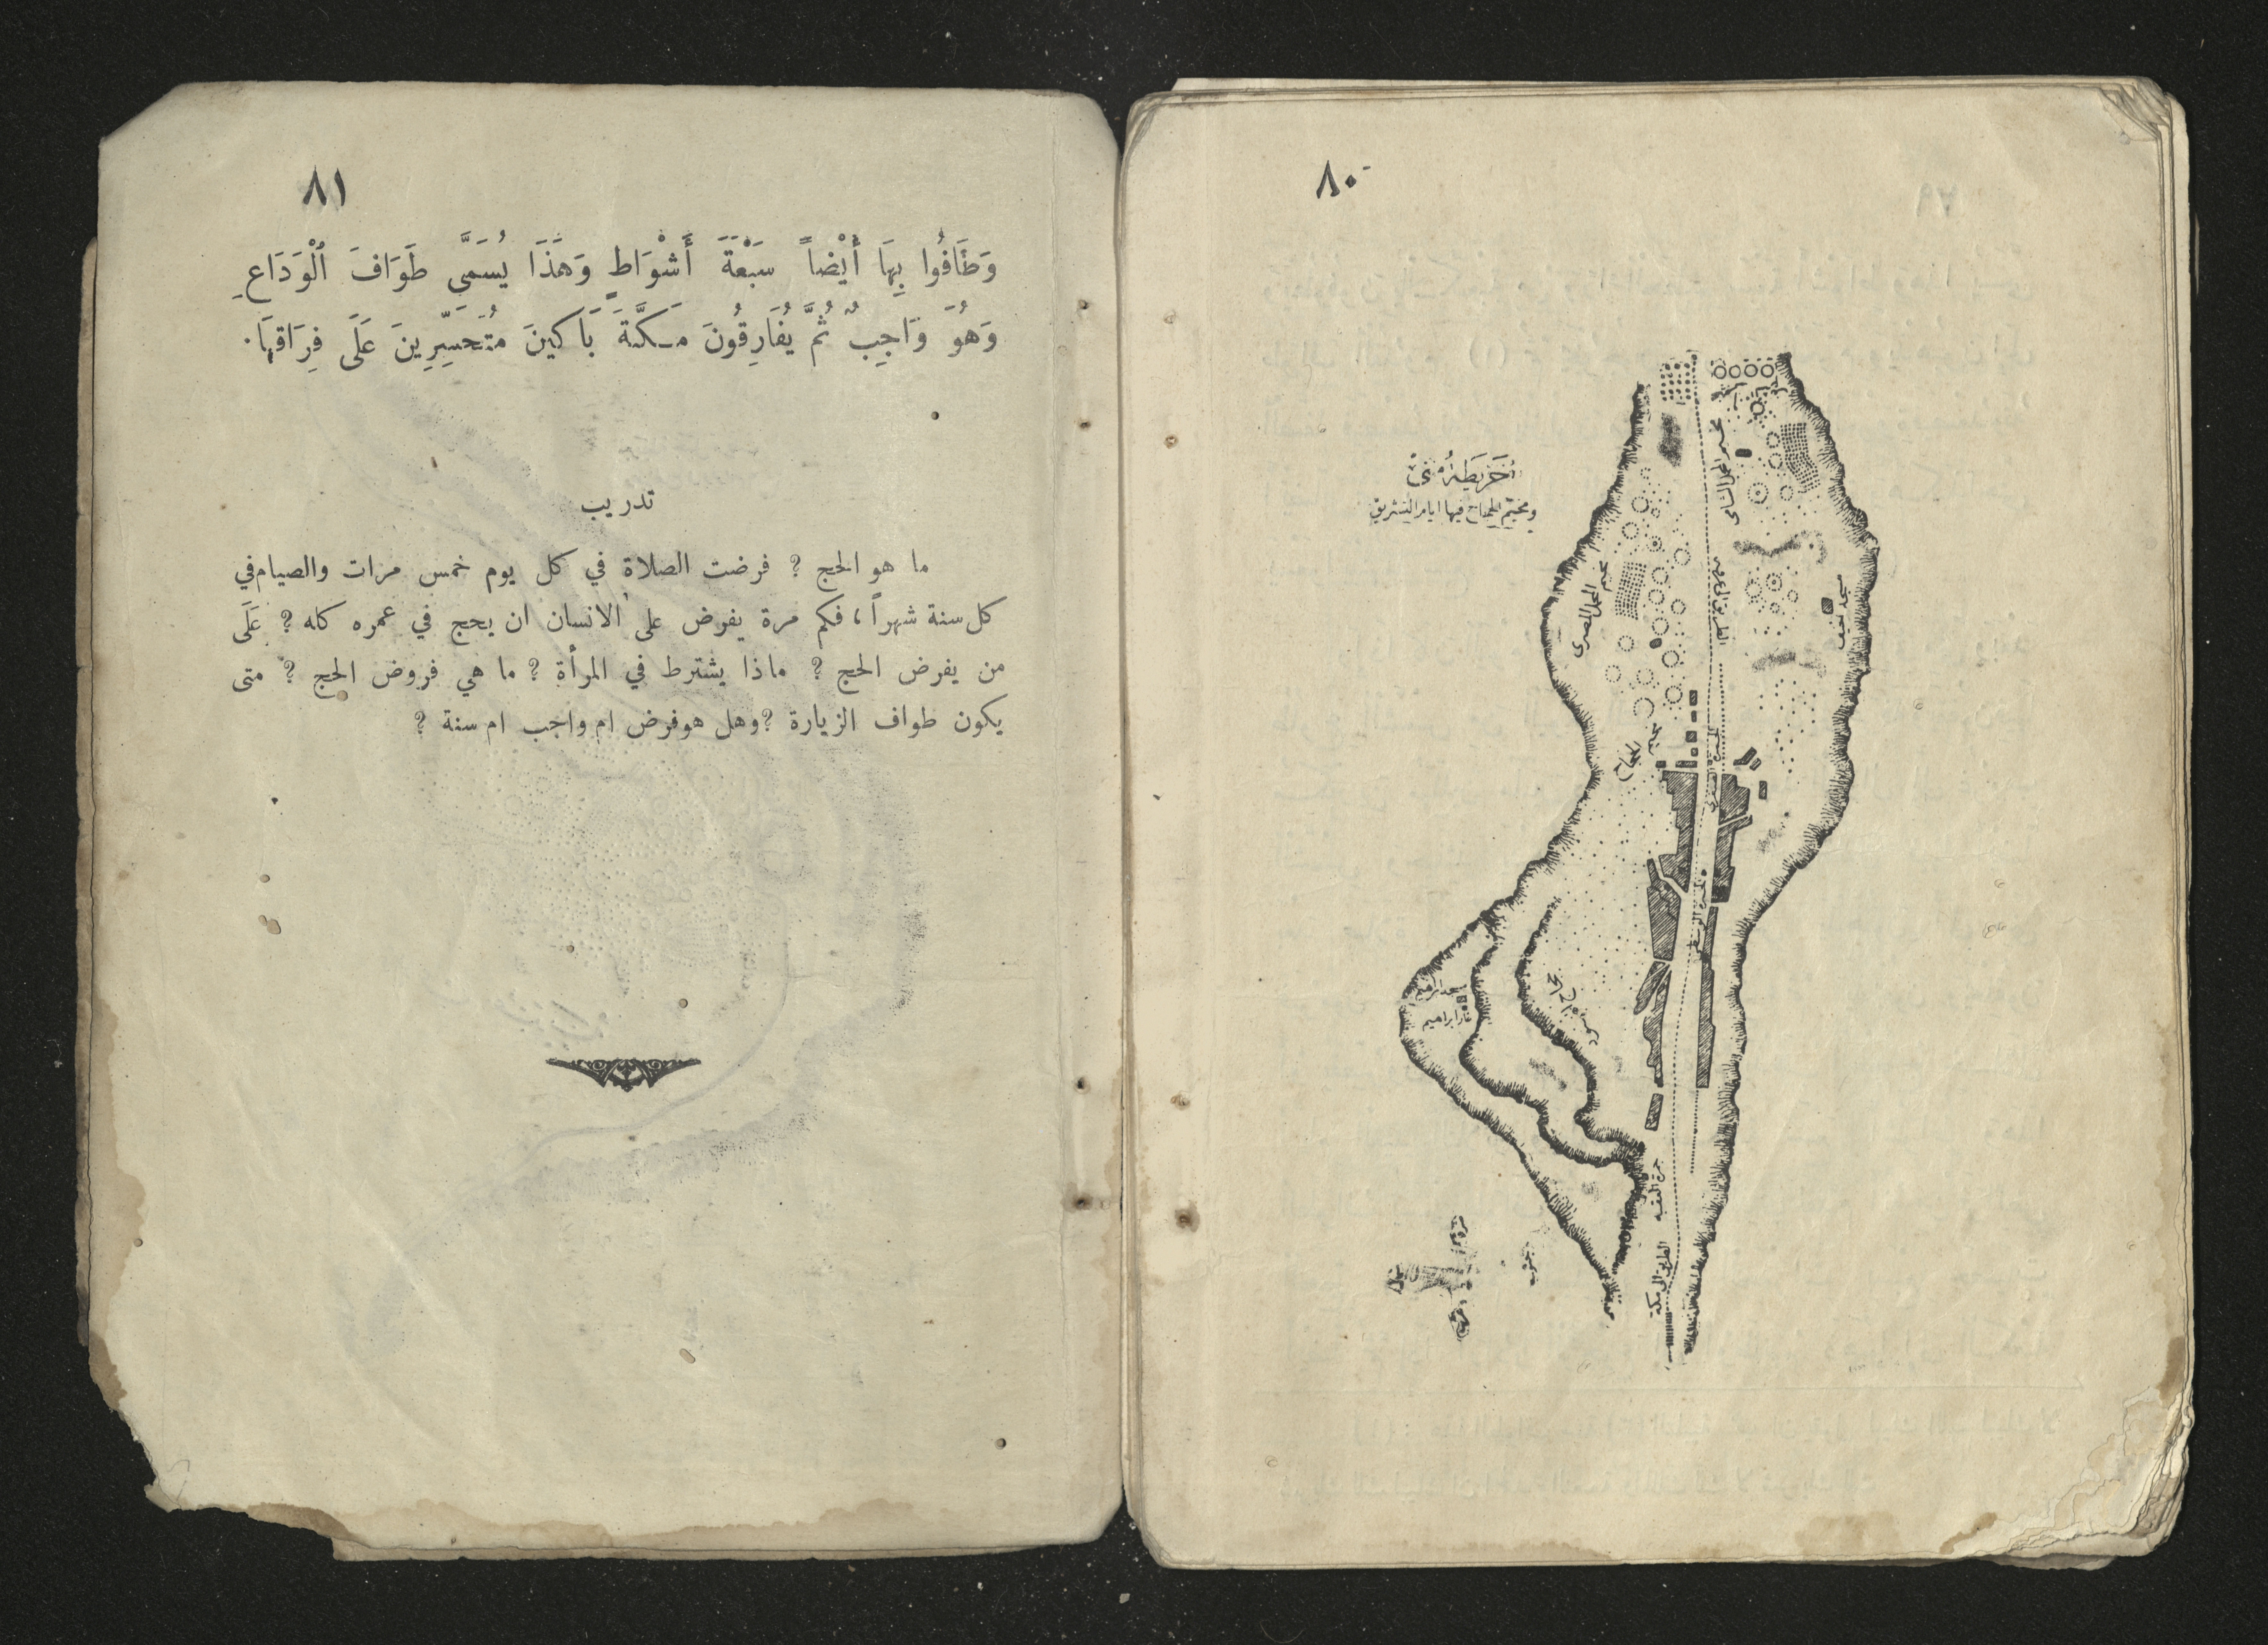 ٨٠
خَرِيطَةُ مِنىً
ومخيم الحجاج فيها ايام التشريق
مخيم المحمل الشامي
الطريق الى عرفه
مسجد الخيف
مخيم المحمل المصري
مخيم الحجاج
الجمرة الصغرى
الجمرة الوسطى
حجاج
غار ابراهيم
جمرة العقبه
الطريق الى مكة
شرق
جنوب
٨١
وَطَافُوا بِهَا أَيْضاً سَبْعَةَ أَشْوَاطٍ وَهَذَا يُسَمَّى طَوَافَ ٱلْوَدَاعِ
وَهُوَ وَاجِبٌ ثُمَّ يُفَارِقُونَ مَكَّةَ بَاكينَ مُتَحَسِّرِينَ عَلَى فِرَاقِهَا.
تدريب
ما هو الحج ? فرضت الصلاة في كل يوم خمس مرات والصيام في
كل سنة شهراً، فكم مرة يفرض على الانسان ان يحج في عمره كله ? عَلَى
من يفرض الحج ? ماذا يشترط في المرأة ? ما هي فروض الحج ? متى
يكون طواف الزيارة ? وهل هو فرض ام واجب ام سنة ?